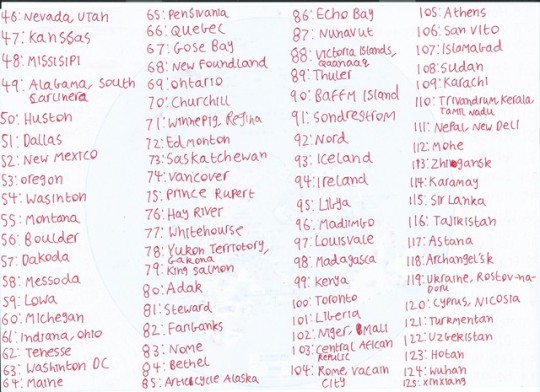 46: Nevada, Utah
47: Kanssas
48: Missisipi
49: Alagama, South
Carlinera
50: Huston
51: Dallas
52: New Mexico
53: oregon
54: Wasinton
55: Montana
56: Boulder
57: Dakoda
58: Messoda
59: Lowa
60: Michegan
61: Indrana, ohio
62: Tenesse
63: Washinton DC
64: Maine
65: Pensivania
66: Quebec
67: Gose Bay
68: New Foundland
69: ontario
70: Churchill
71: Winnepig, Regina
72: Edmonton
73: Saskatchewan
74: Vancover
75: Prince Rupert
76: Hay River
77: Whitehourse
78: Yukon Terriotory,
Gakona
79: King Salmon
80: Adak
81: Steward
82: Faribanks
83: Nome
84: Bethel
85: Articcycle Alaska
86: Echo Bay
87: Nunavut
88: Victoria Islands,
Qaanaaq
89: Thuler
90: Baffm Island
91: Sondrestrom
92: Nord
93: Iceland
94: Ireland
95: Libya
96: Madiimgo
97: Louisvale
98: Madagasca
99: Kenya
100: Toronto
101: Liberia
102: Niger, Mali
103: Central African
Repulic
104: Rome Vacain
City
105: Athens
106: San Vito
107: Islamabad
108: Sudan
109: Karachi
110: Trivandrum, Kerala,
Tamil Nadu
111: Nepal, New Deli
112: Mohe
113: Zhigansk
114: Karamay
115: Sir Lanka
116: Tajikistan
117: Astana
118: Archangel'sk
119: Ukraine, Rostov-na-
Donu
120: Cyprus, Nicosia
121: Turkmentan
122: Uzbekistan
123: Hotan
124: Wuhan
125: Xinxiang